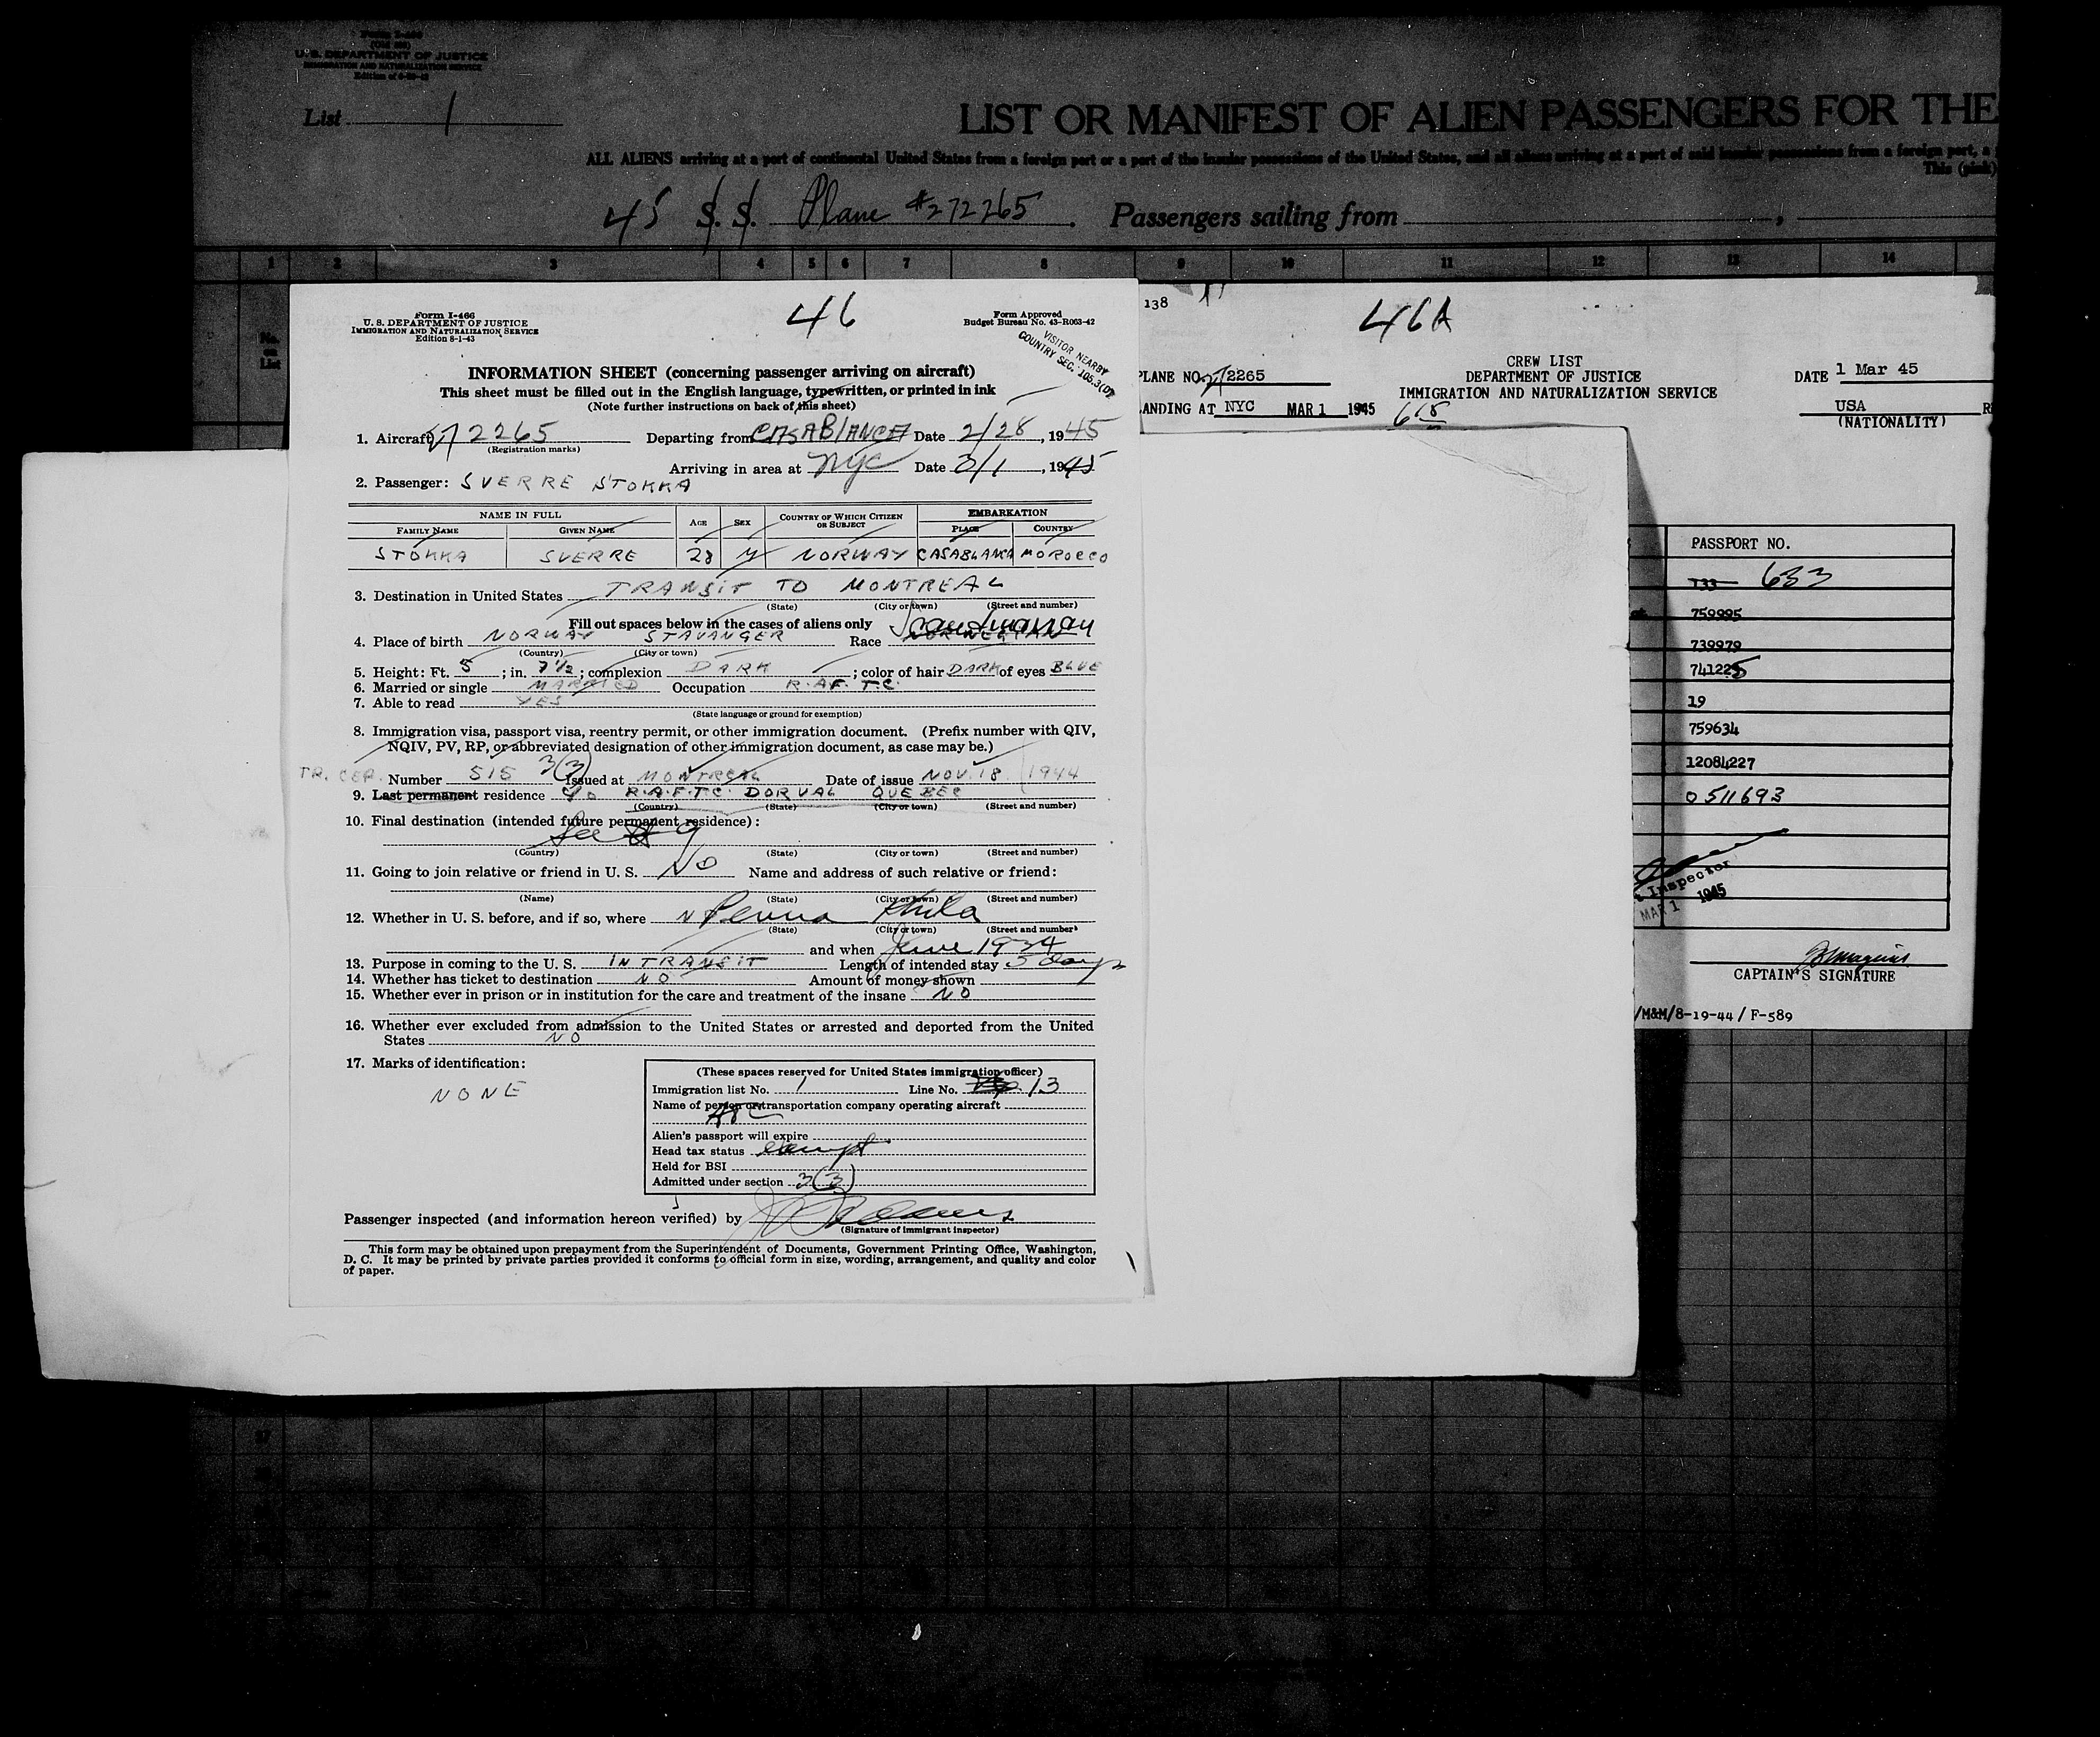 Form I-466
U. S. DEPARTMENT OF JUSTICE
IMMIGRATION AND NATURALIZATION SERVICE
Edition 8-1-43
46
Form Approved
Budget Bureau No. 43-R063-42
VISITOR NEARBY
COUNTRY SEC. 105.3(0)
INFORMATION SHEET (concerning passenger arriving on aircraft)
This sheet must be filled out in the English language, typewritten, or printed in ink
(Note further instructions on back of this sheet)
1. Aircraft 72265 Departing from CASABLANCA Date 2/28, 1945
(Registration marks)
Arriving in area at NYC Date 3/1, 1945
2. Passenger: SVERRE STOKKA
NAME IN FULL AGE SEX COUNTRY OF WHICH CITIZEN OR SUBJECT EMBARKATION
FAMILY NAME GIVEN NAME PLACE COUNTRY
STOKKA SVERRE 28 M NORWAY CASABLANCA MOROCCO
3. Destination in United States TRANSIT TO MONTREAL
(State) (City or town) (Street and number)
Fill out spaces below in the cases of aliens only
4. Place of birth NORWAY STAVANGER Race NORWEGIAN Scandinavian
(Country) (City or town)
5. Height: Ft. 5; in. 7 1/2; complexion DARK; color of hair DARK of eyes BLUE
6. Married or single MARRIED Occupation R.A.F. T.C.
7. Able to read YES
(State language or ground for exemption)
8. Immigration visa, passport visa, reentry permit, or other immigration document. (Prefix number with QIV,
NQIV, PV, RP, or abbreviated designation of other immigration document, as case may be.)
TR. CER. Number 515 3(3) Issued at MONTREAL Date of issue NOV. 18 1944
9. Last permanent residence c/o R.A.F.T.C. DORVAL QUEBEC
(Country) (State) (City or town) (Street and number)
10. Final destination (intended future permanent residence):
See # 9
(Country) (State) (City or town) (Street and number)
11. Going to join relative or friend in U. S. NO Name and address of such relative or friend:
(Name) (State) (City or town) (Street and number)
12. Whether in U. S. before, and if so, where Penna Phila
(State) (City or town) (Street and number)
and when June 1934
13. Purpose in coming to the U. S. IN TRANSIT Length of intended stay 5 days
14. Whether has ticket to destination NO Amount of money shown
15. Whether ever in prison or in institution for the care and treatment of the insane NO
16. Whether ever excluded from admission to the United States or arrested and deported from the United
States NO
17. Marks of identification:
NONE
(These spaces reserved for United States immigration officer)
Immigration list No. 1 Line No. 13
Name of person or transportation company operating aircraft
ATC
Alien's passport will expire
Head tax status exempt
Held for BSI
Admitted under section 3(3)
Passenger inspected (and information hereon verified) by
(Signature of immigrant inspector)
This form may be obtained upon prepayment from the Superintendent of Documents, Government Printing Office, Washington,
D. C. It may be printed by private parties provided it conforms to official form in size, wording, arrangement, and quality and color
of paper.
U. S. DEPARTMENT OF JUSTICE
IMMIGRATION AND NATURALIZATION SERVICE
List 1
LIST OR MANIFEST OF ALIEN PASSENGERS FOR THE
ALL ALIENS arriving at a port of continental United States from a foreign port or a port of the insular possessions of the United States, and all aliens arriving at a port of said insular possessions from a foreign port, a
This (pink)
45 S. S. Plane #272265. Passengers sailing from ,
1 2 3 4 5 6 7 8 9 10 11 12 13 14
No. on List
138
46A
CREW LIST
DEPARTMENT OF JUSTICE
IMMIGRATION AND NATURALIZATION SERVICE
PLANE NO. 72265
DATE 1 Mar 45
ANDING AT NYC MAR 1 1945
USA
(NATIONALITY)
PASSPORT NO.
733 633
759995
739979
741225
19
759634
12084227
0511693
Inspector
MAR 1 1945
CAPTAIN'S SIGNATURE
/M&M/8-19-44 / F-589